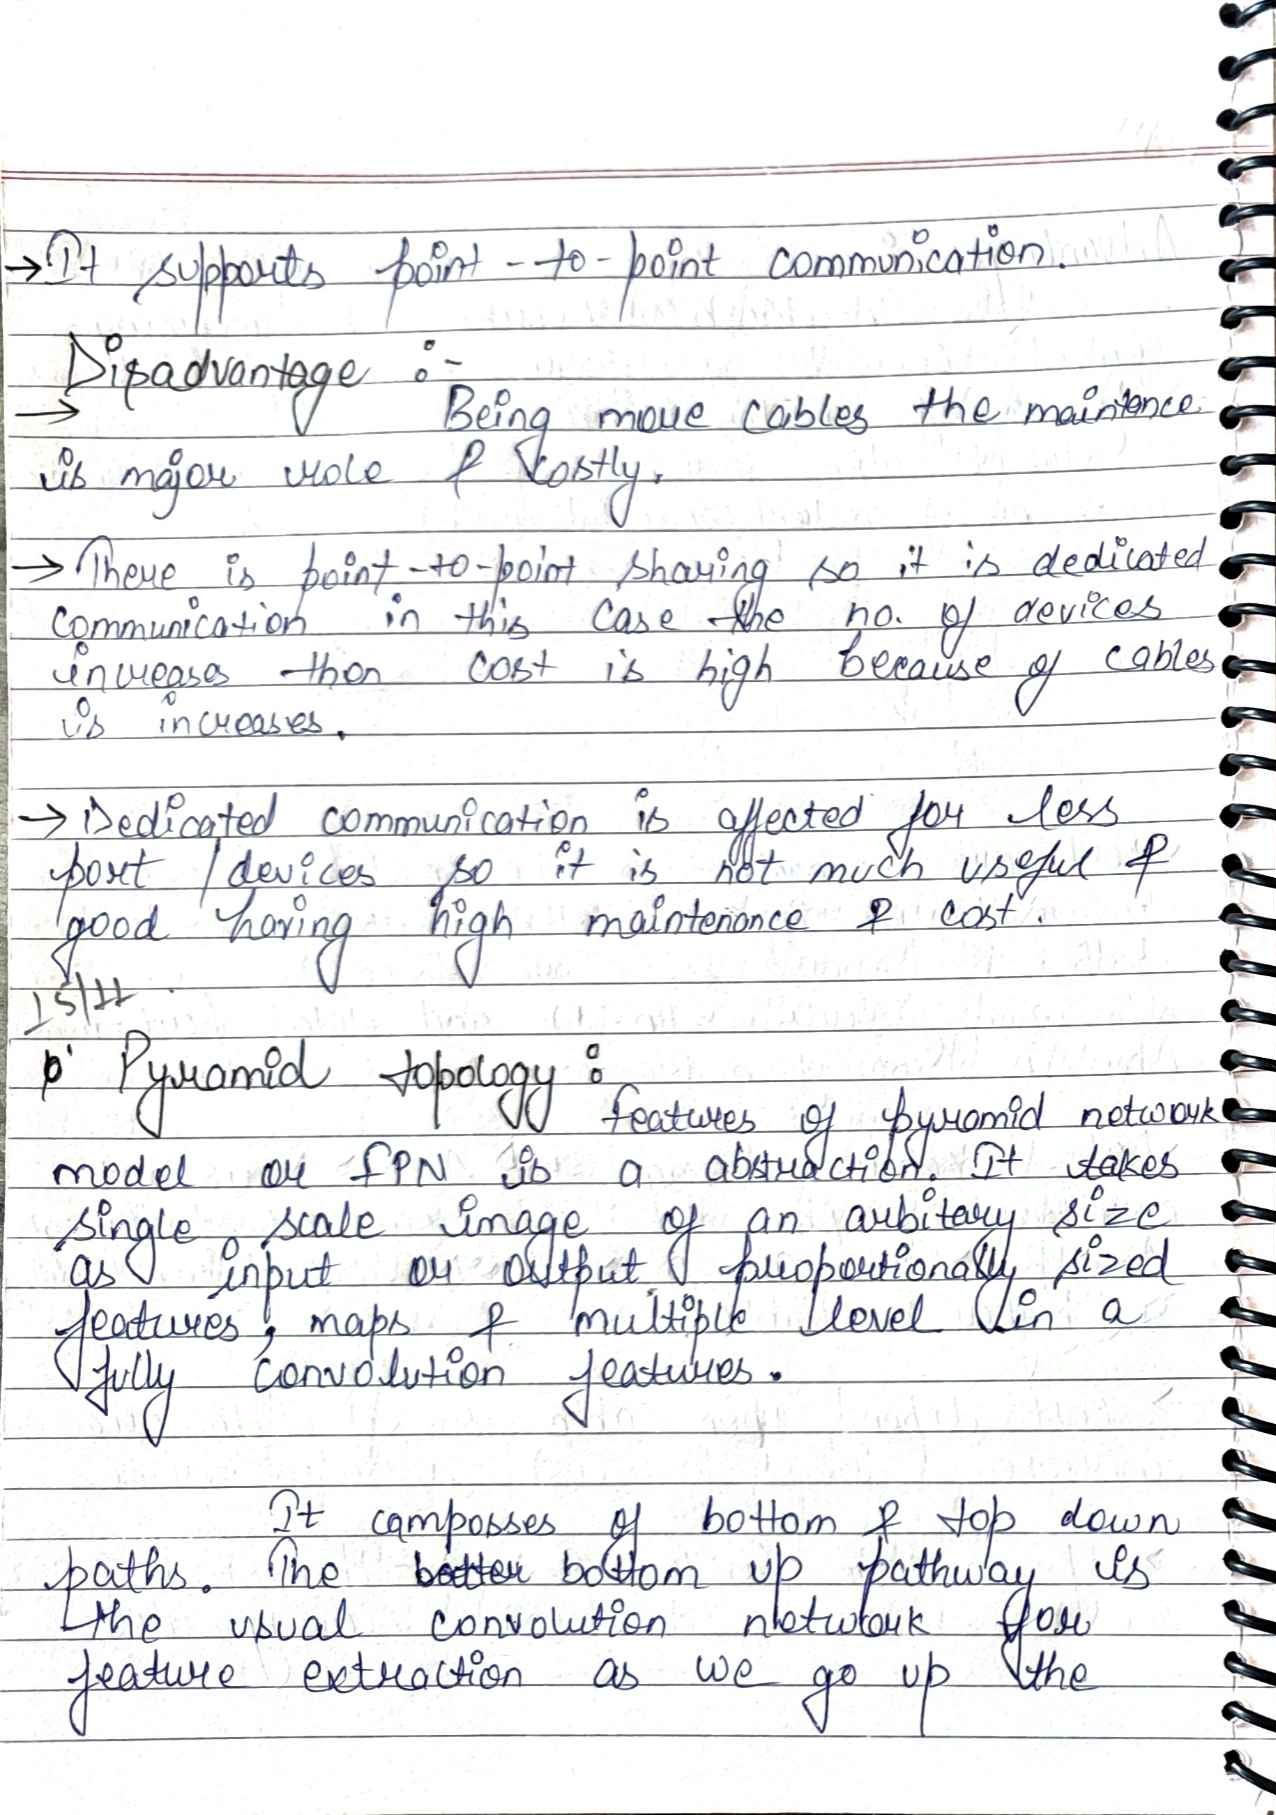 → It supports point-to-point communication.
Disadvantage :-
→ Being more cables the maintence
is major role & costly.
→ There is point-to-point sharing so it is dedicated
communication in this case the no. of devices
increases then cost is high because of cables
is increases.
→ Dedicated communication is affected for less
port / devices so it is not much useful &
good having high maintenance & cost.
15/11
Pyramid topology :
features of pyramid network
model or FPN is a abstraction. It takes
single scale image of an arbitary size
as input or output proportionally sized
features, maps & multiple level in a
fully convolution features.
It composses of bottom & top down
paths. The better bottom up pathway is
the usual convolution network for
feature extraction as we go up the